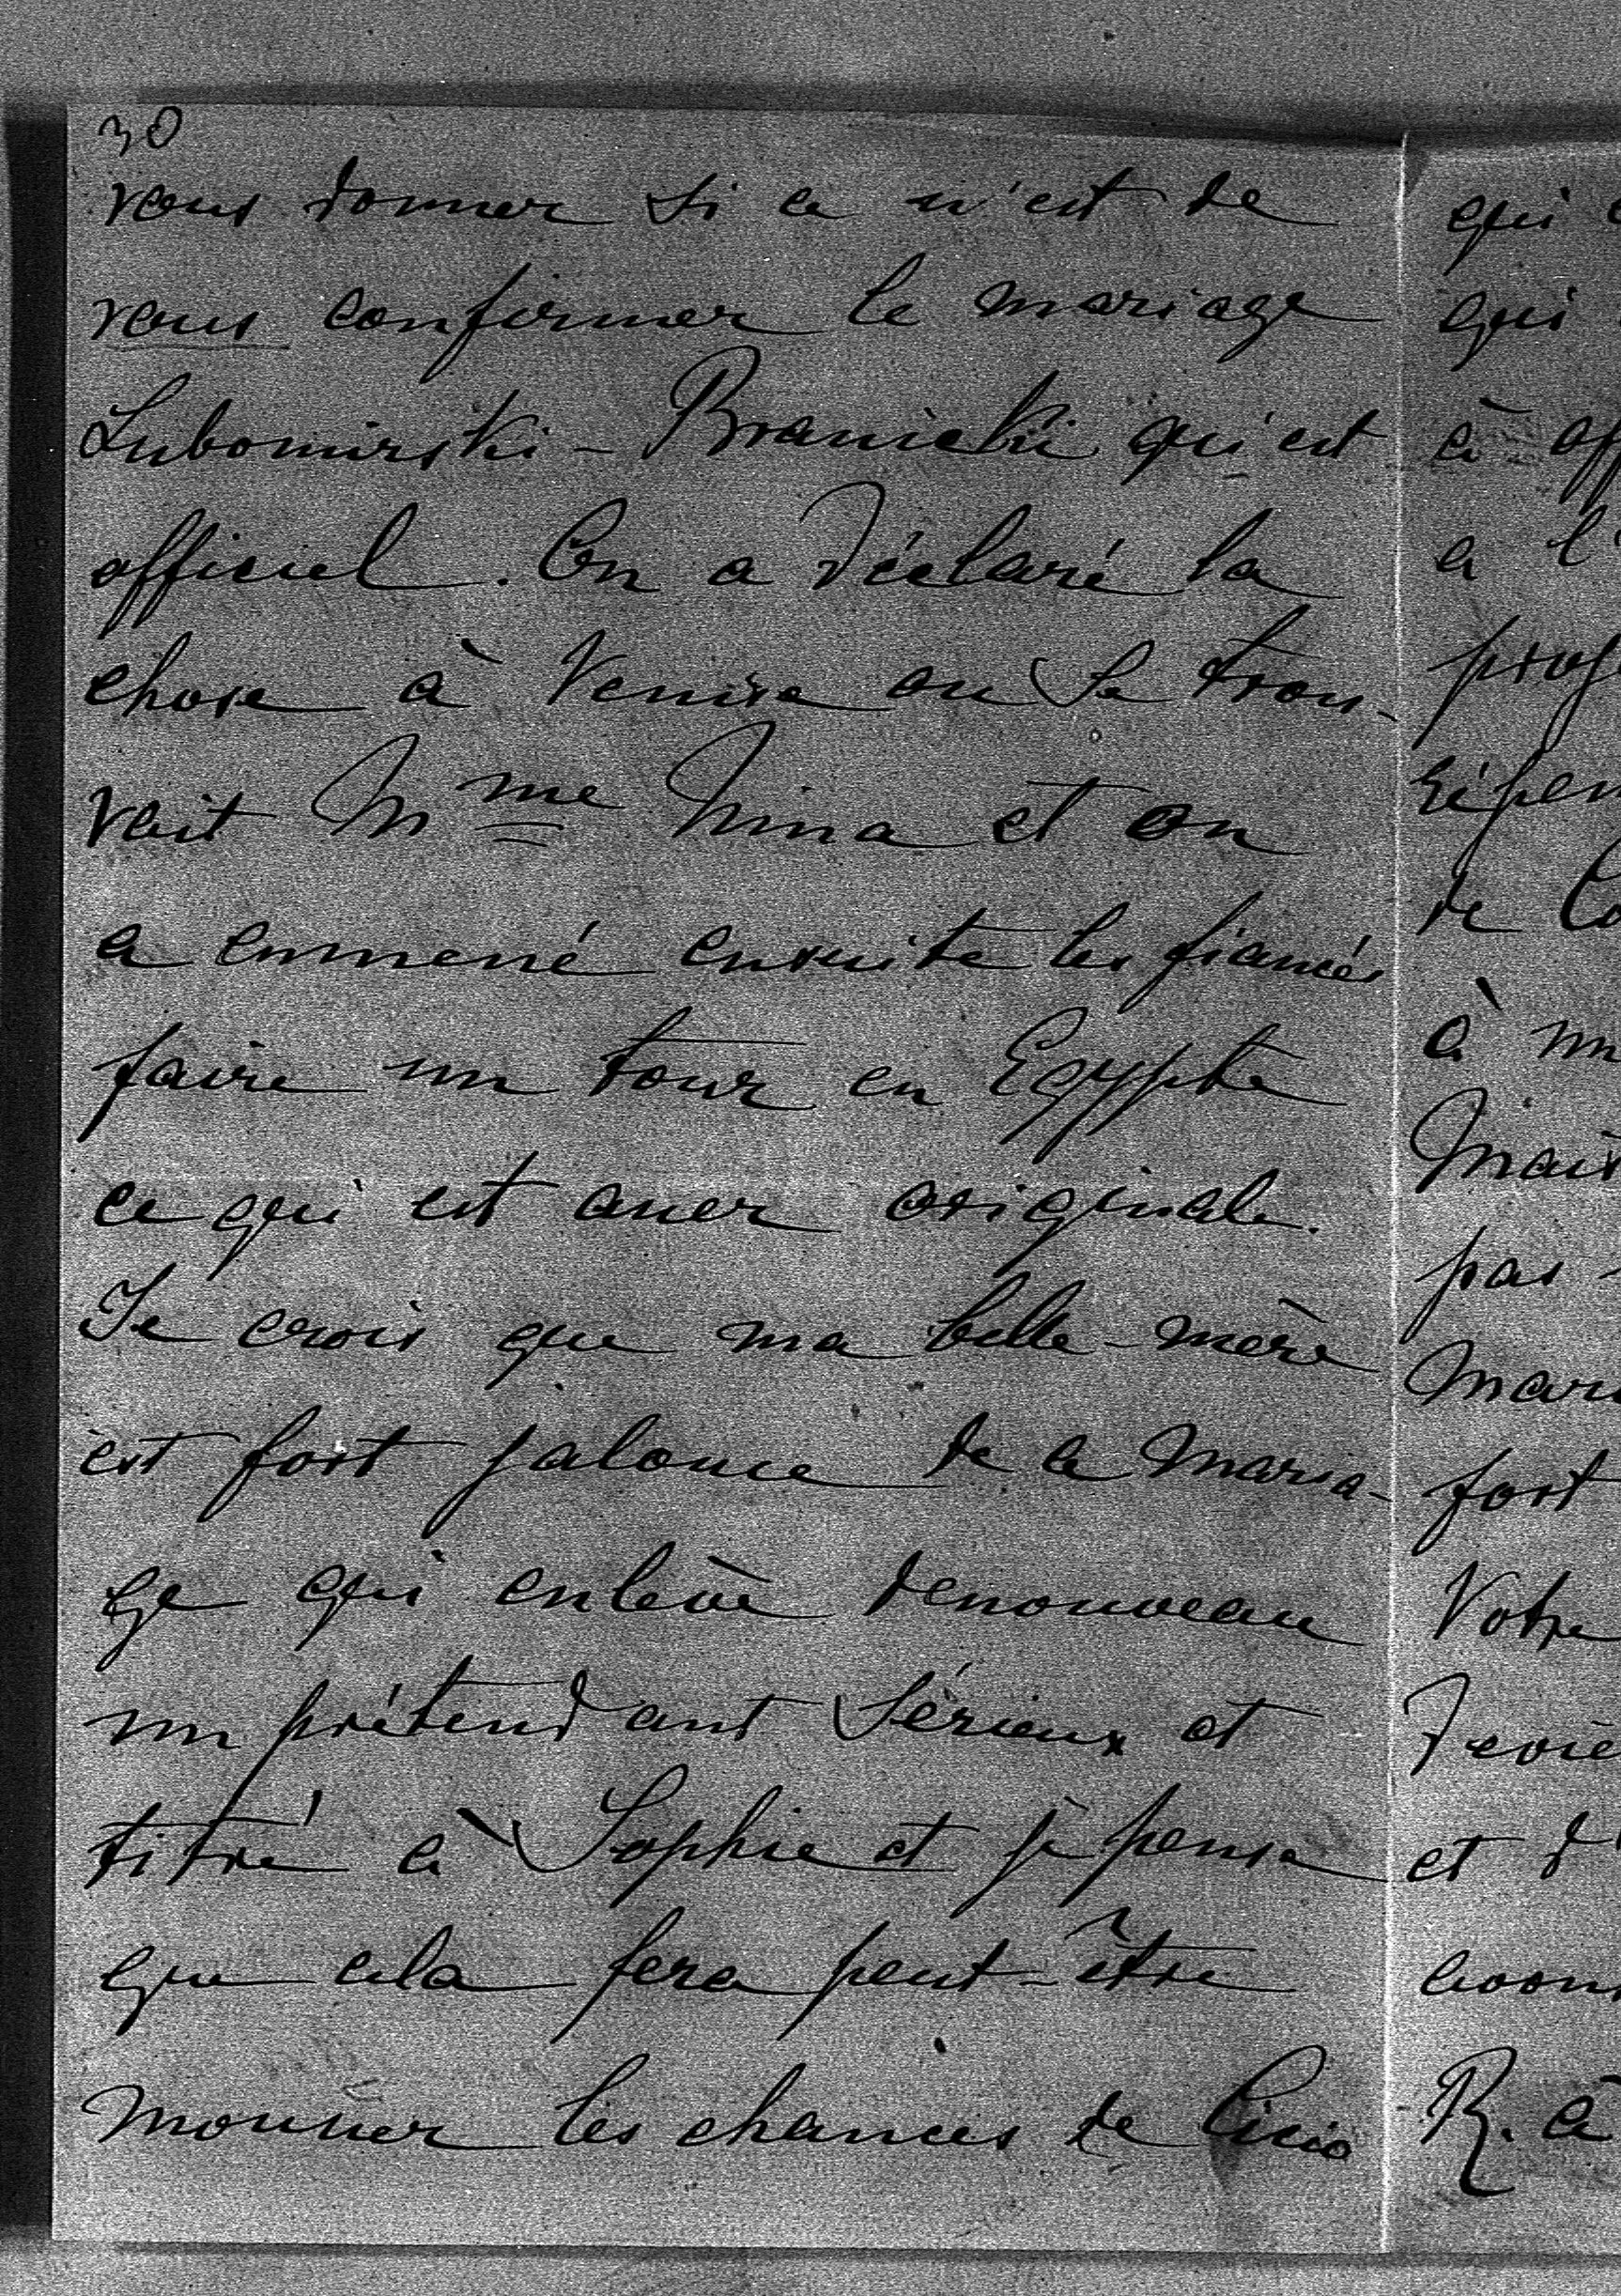 30
vous donner si ce n'est de
vous confirmer le mariage
Lubomirski - Branicki qui est
officiel. On a déclaré la
chose à Venise ou se trou-
vait Mme Nina et on
a emmené ensuite les fiancés
faire un tour en Egypte
ce qui est assez originale.
Je crois que ma belle-mère
est fort jalouse de ce maria-
ge qui enlève denouveau
un prétendant sérieux et
titré à Sophie et je pense
que cela fera peut-être
monter les chances de
qui
qui
à
a l'
de
à
pas
fort
Votre
et
R. à